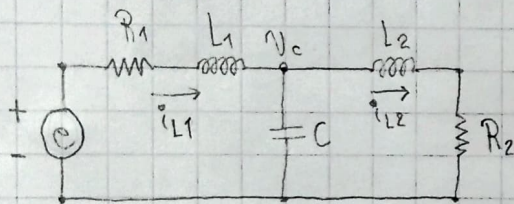 R1 L1 Vc L2
+ iL1 iL2
e C R2
-